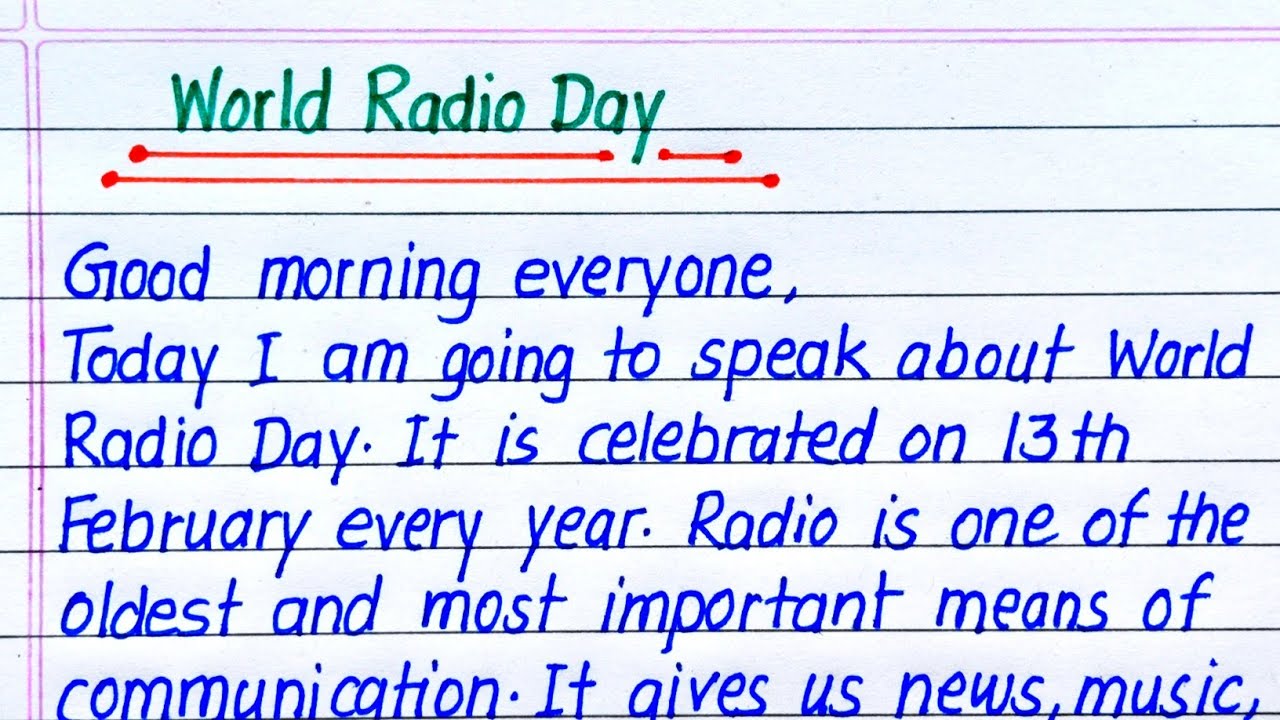 World Radio Day
Good morning everyone,
Today I am going to speak about World
Radio Day. It is celebrated on 13th
February every year. Radio is one of the
oldest and most important means of
communication. It gives us news, music,